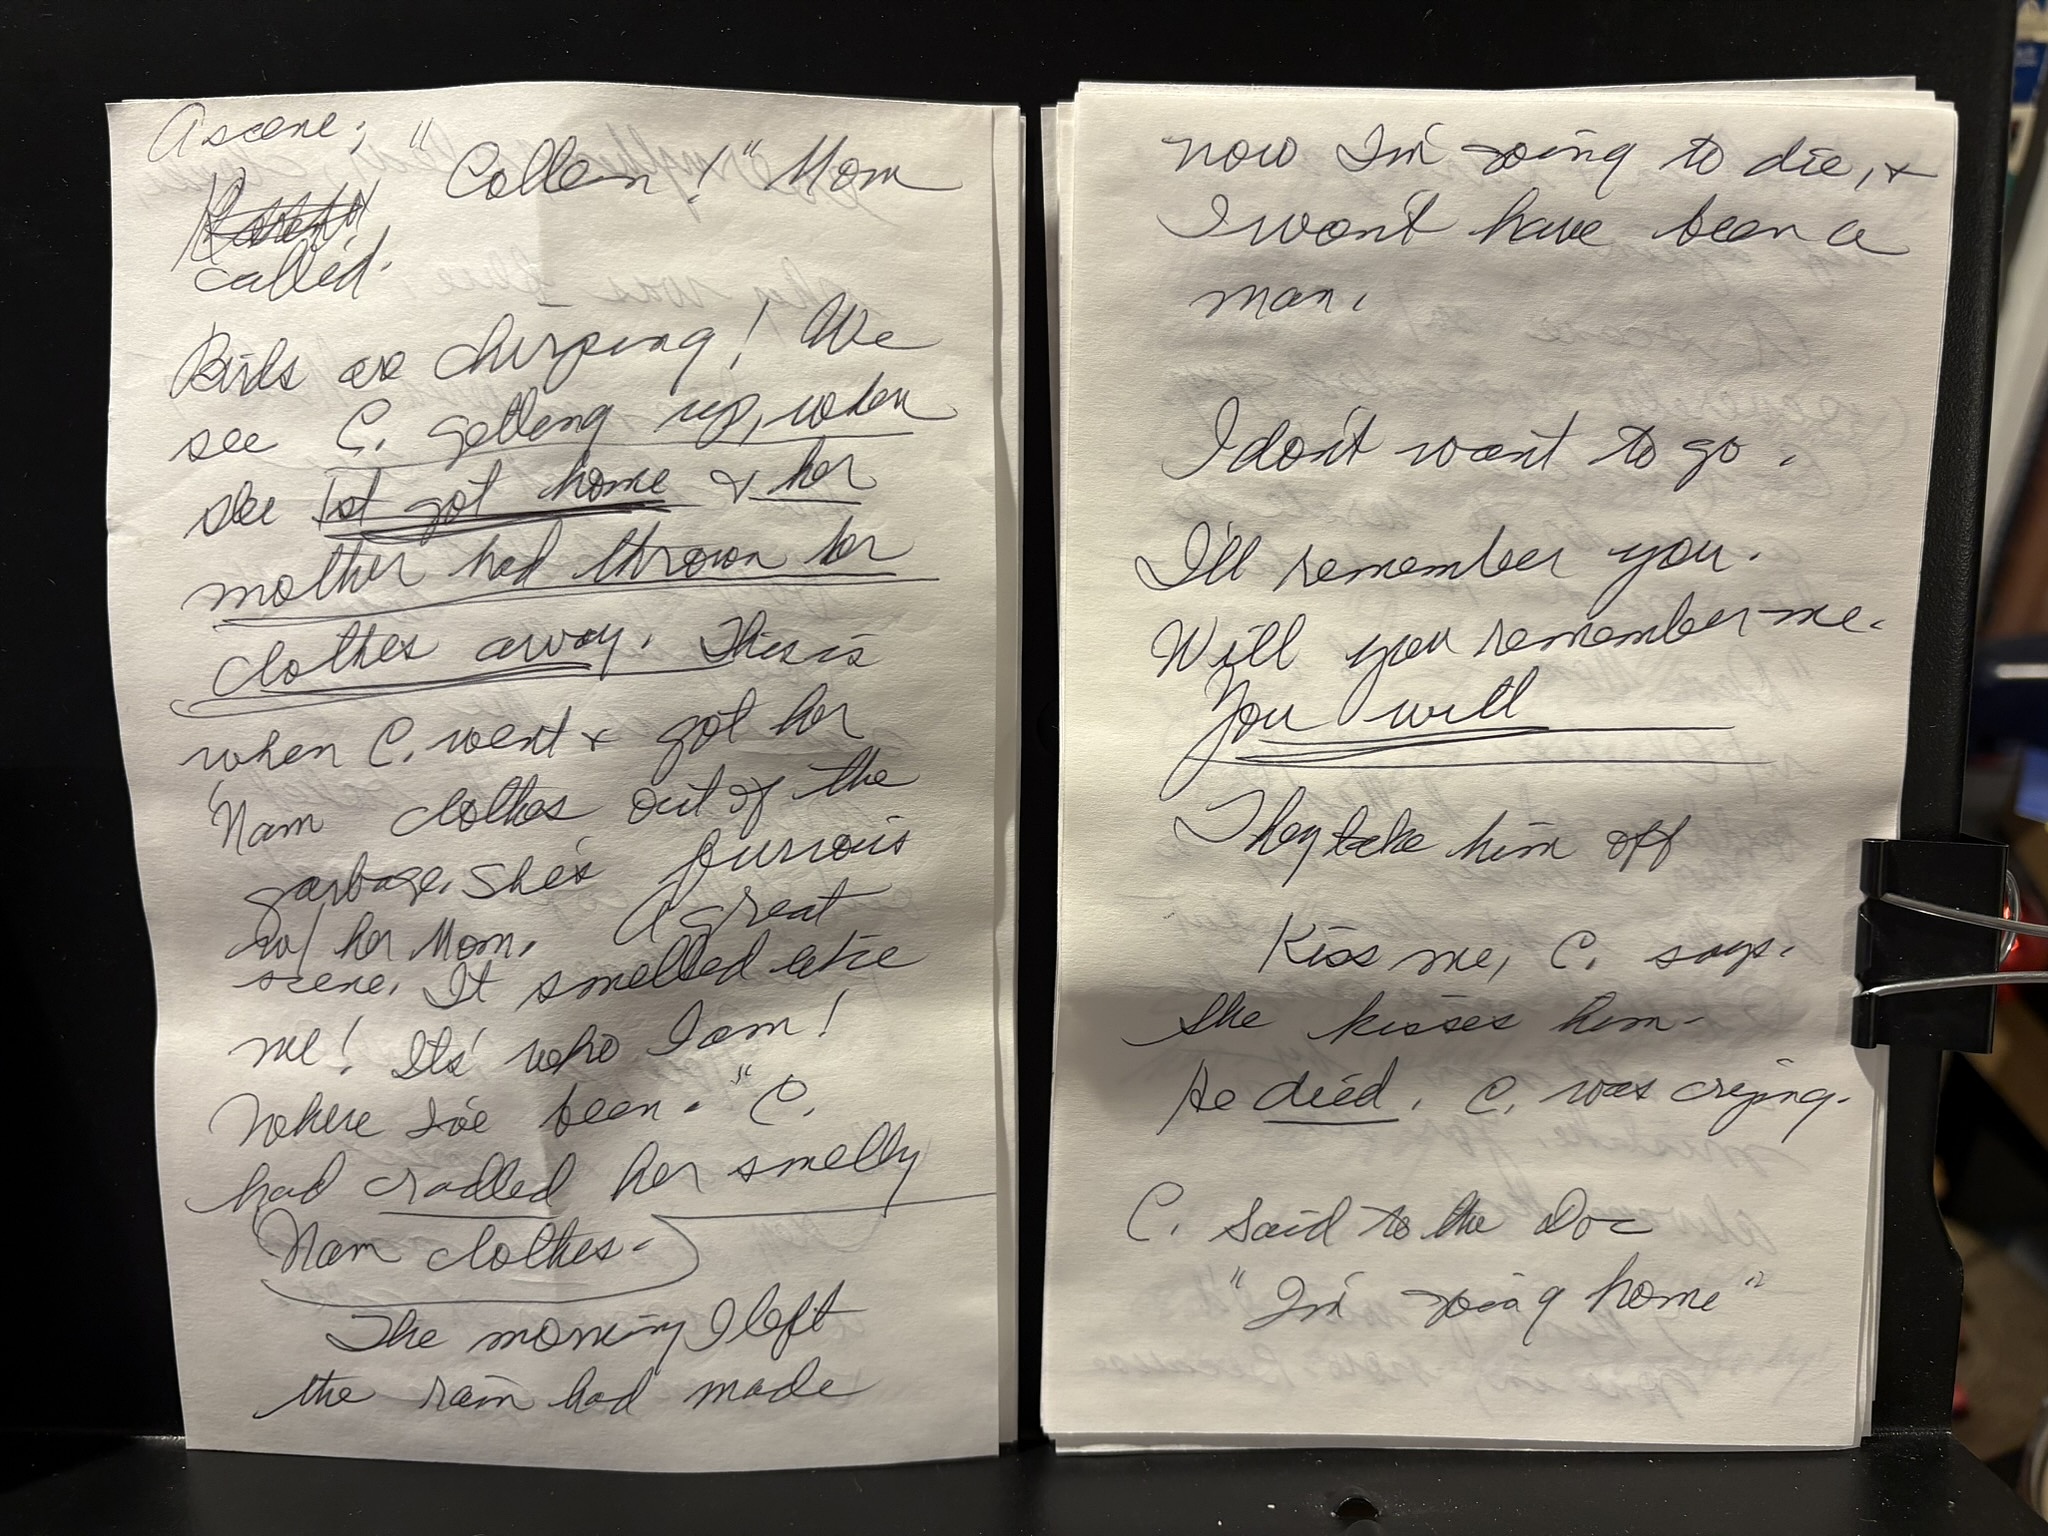 A scene;
"Colleen!" Mom
called.
Birds are chirping! We
see C. getting up, when
she 1st got home & her
mother had thrown her
clothes away. This is
when C. went & got her
'Nam clothes out of the
garbage. She's furious
w/ her Mom. A great
scene. It smelled like
me! It's who I am!
Where I've been." C.
had cradled her smelly
Nam clothes.
The morning I left
the rain had made
now I'm going to die, &
I won't have been a
man.
I don't want to go.
I'll remember you.
Will you remember me.
You will
They take him off
Kiss me, C. says.
She kisses him.
He died. C. was crying.
C. said to the Doc
"I'm going home"